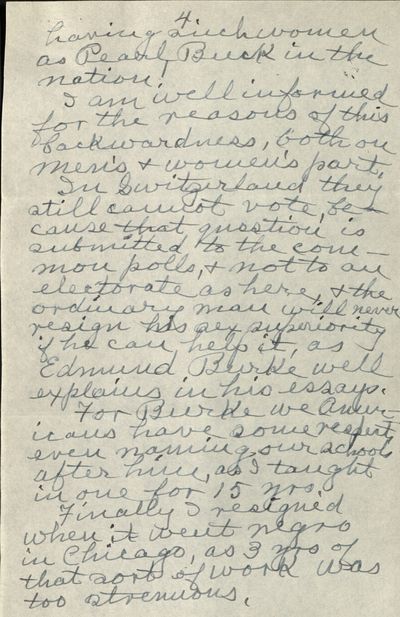 4.
having such women
as Pearl Buck in the
nation!
I am well informed
for the reasons of this
backwardness, both on
men's & women's part.
In Switzerland they
still cannot vote, be-
cause that question is
submitted to the com-
mon polls, & not to an
electorate as here, & the
ordinary man will never
resign his sex superiority
if he can help it, as
Edmund Burke well
explains in his essays.
For Burke we Amer-
icans have some respect,
even naming our schools
after him, as I taught
in one for 15 yrs.
Finally I resigned
when it went negro
in Chicago, as 3 yrs of
that sort of work was
too strenuous.